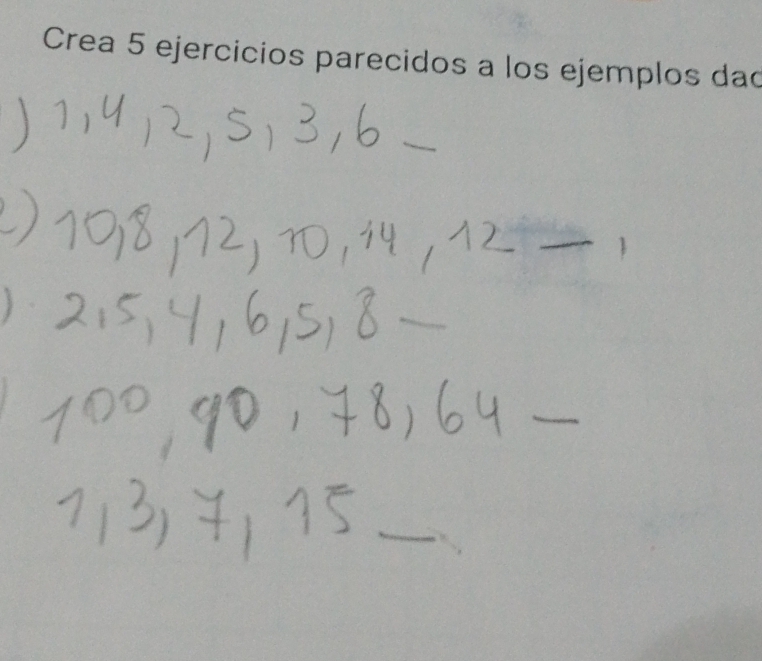 Crea 5 ejercicios parecidos a los ejemplos dad
) 1, 4, 2, 5, 3, 6 _
2) 10, 8, 12, 10, 14, 12 — ,
) 2, 5, 4, 6, 5, 8 —
) 100, 90, 78, 64 —
1, 3, 7, 15 _